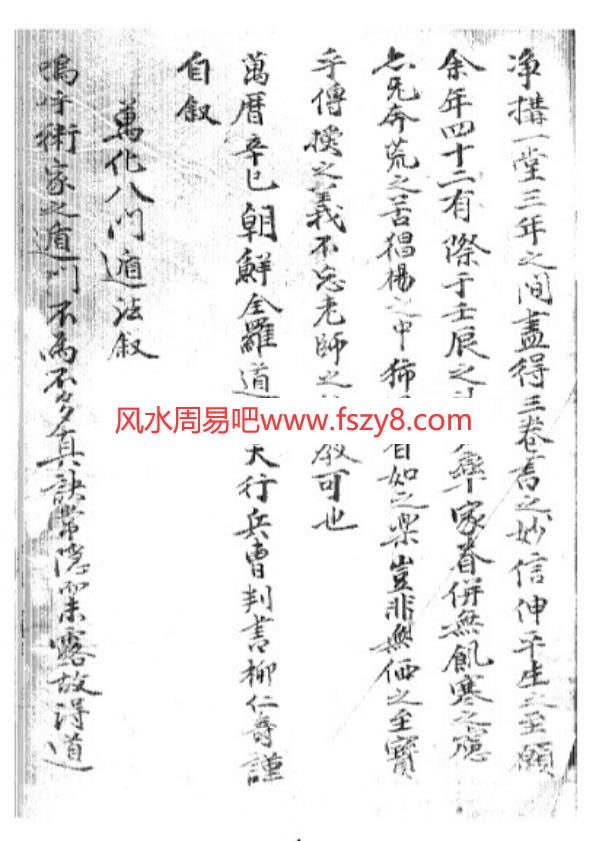 净搆一堂三年之间盡得三卷書之妙信伸平生之至願
余年四十二有際于壬辰之 率家眷併無飢寒之
無兄奔荒之苦猖揚之中 有如之樂豈非無価之至寳
手傳授之義不忘老師之 教可也
萬曆辛巳朝鮮全羅道 天行兵曹判書柳仁壽謹
自叙
萬化八门遁法叙
嗚呼術家之遁门不為不多真訣常隐 露故得道
风水周易吧www.fszy8.com